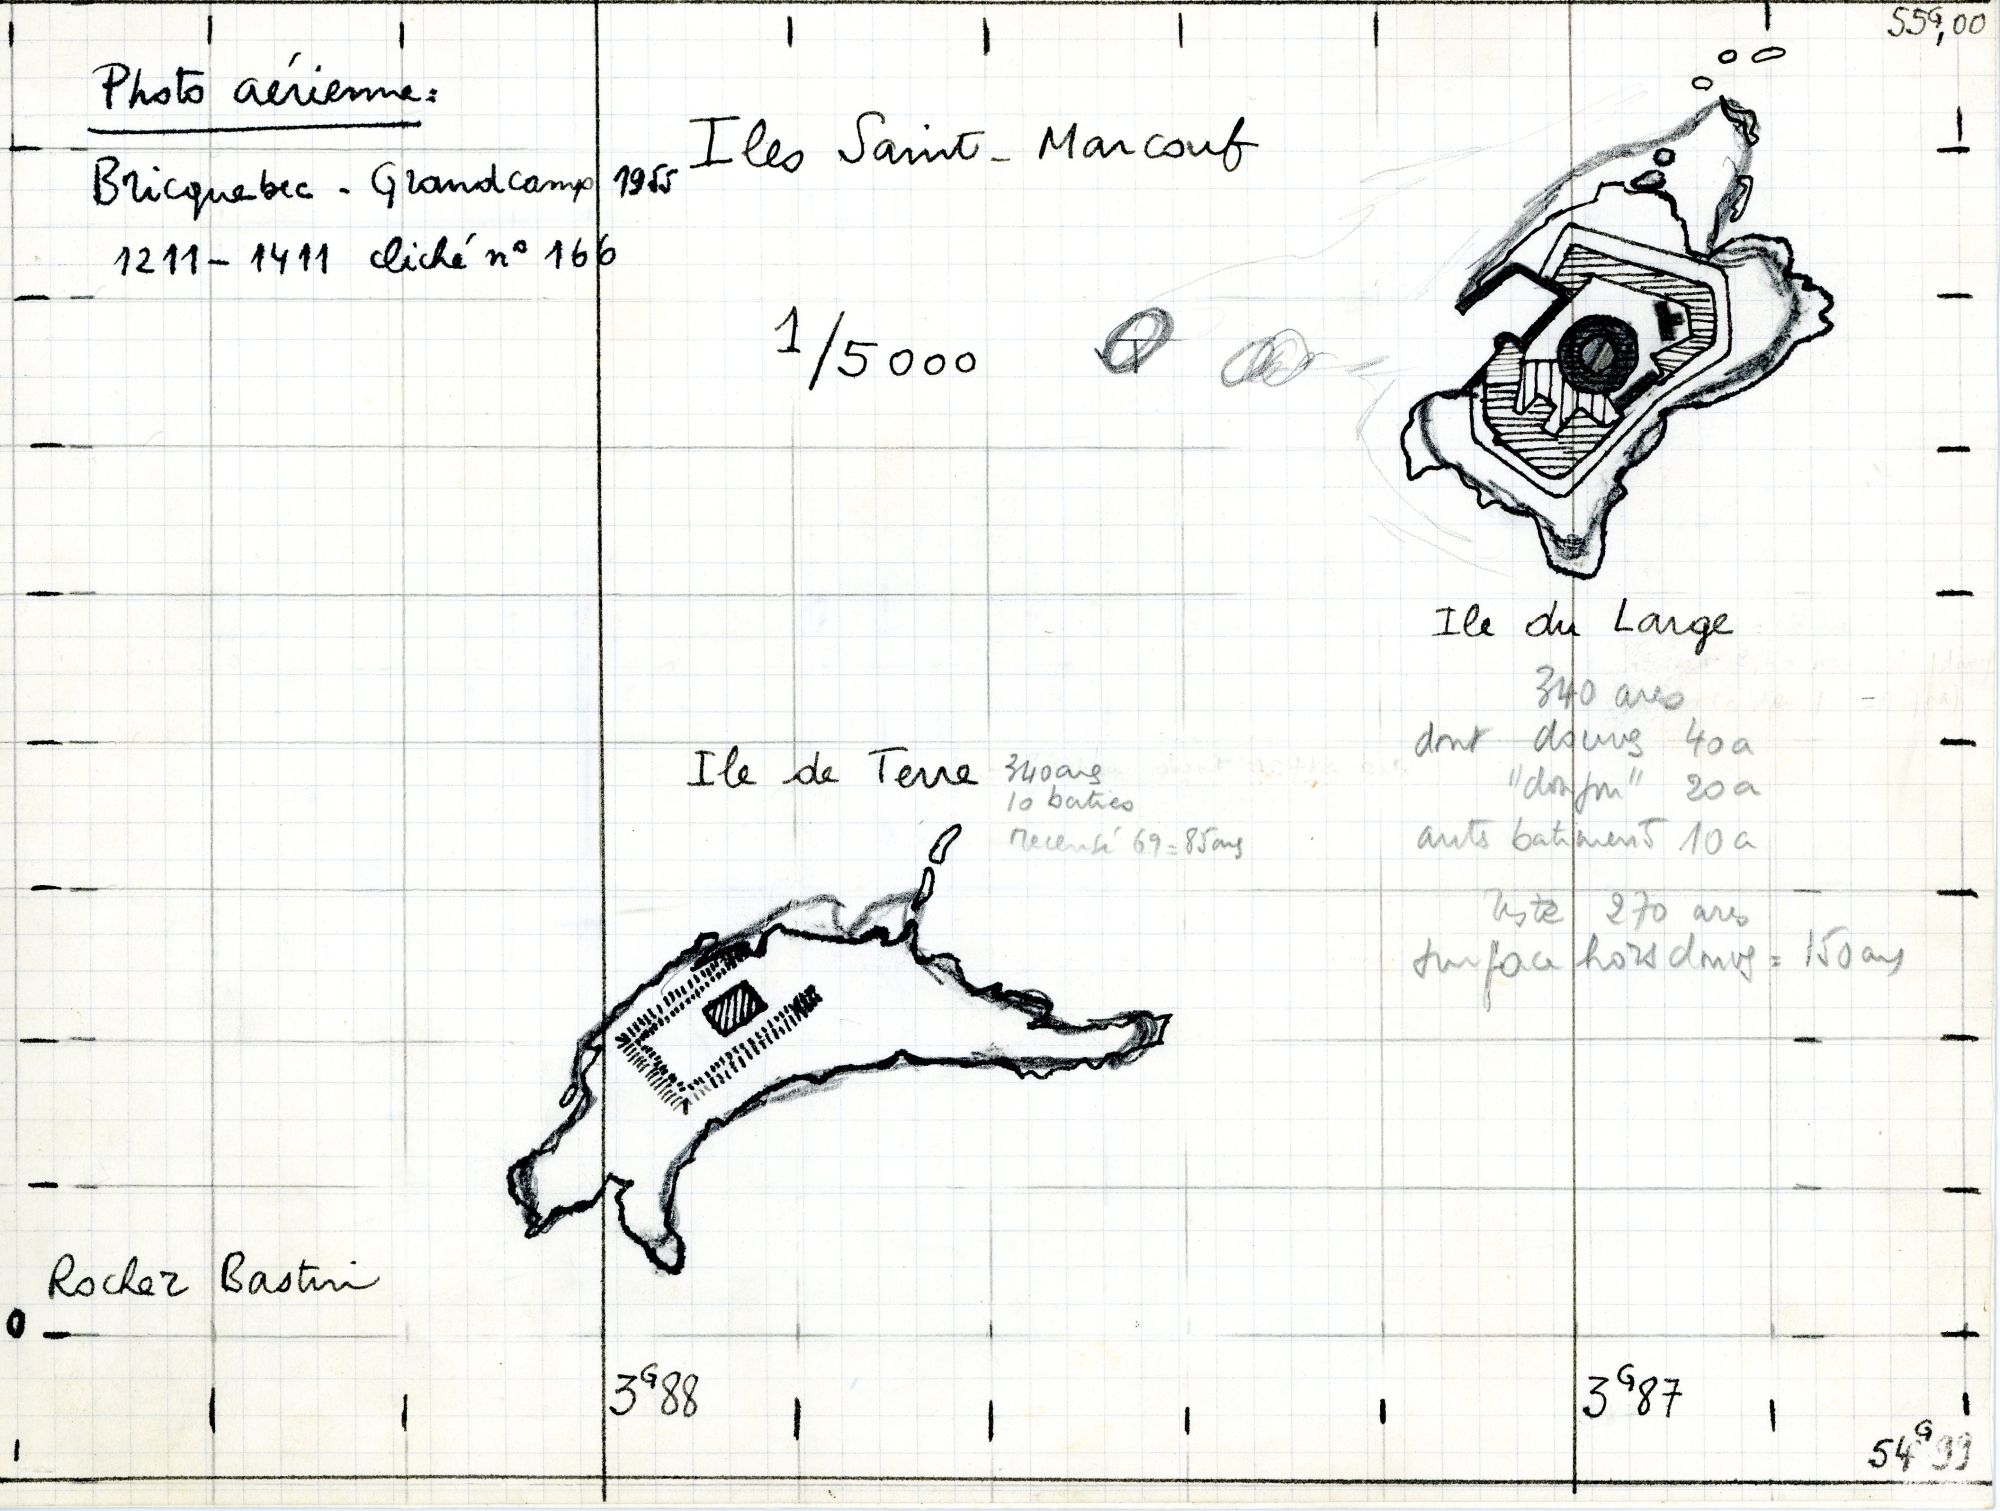 55G,00
Photo aérienne:
Bricquebec - Grandcamp 1955
1211-1411 cliché n° 166
Iles Saint-Marcouf
1/5000
Ile du Large
340 ares
dont douves 40a
"donjon" 20a
auts batiments 10a
reste 270 ares
surface hors douves = 150 ares
Ile de Terre
340 ares
10 baties
recensé 69 = 85 ares
Rocher Bastin
3G88
3G87
54G99